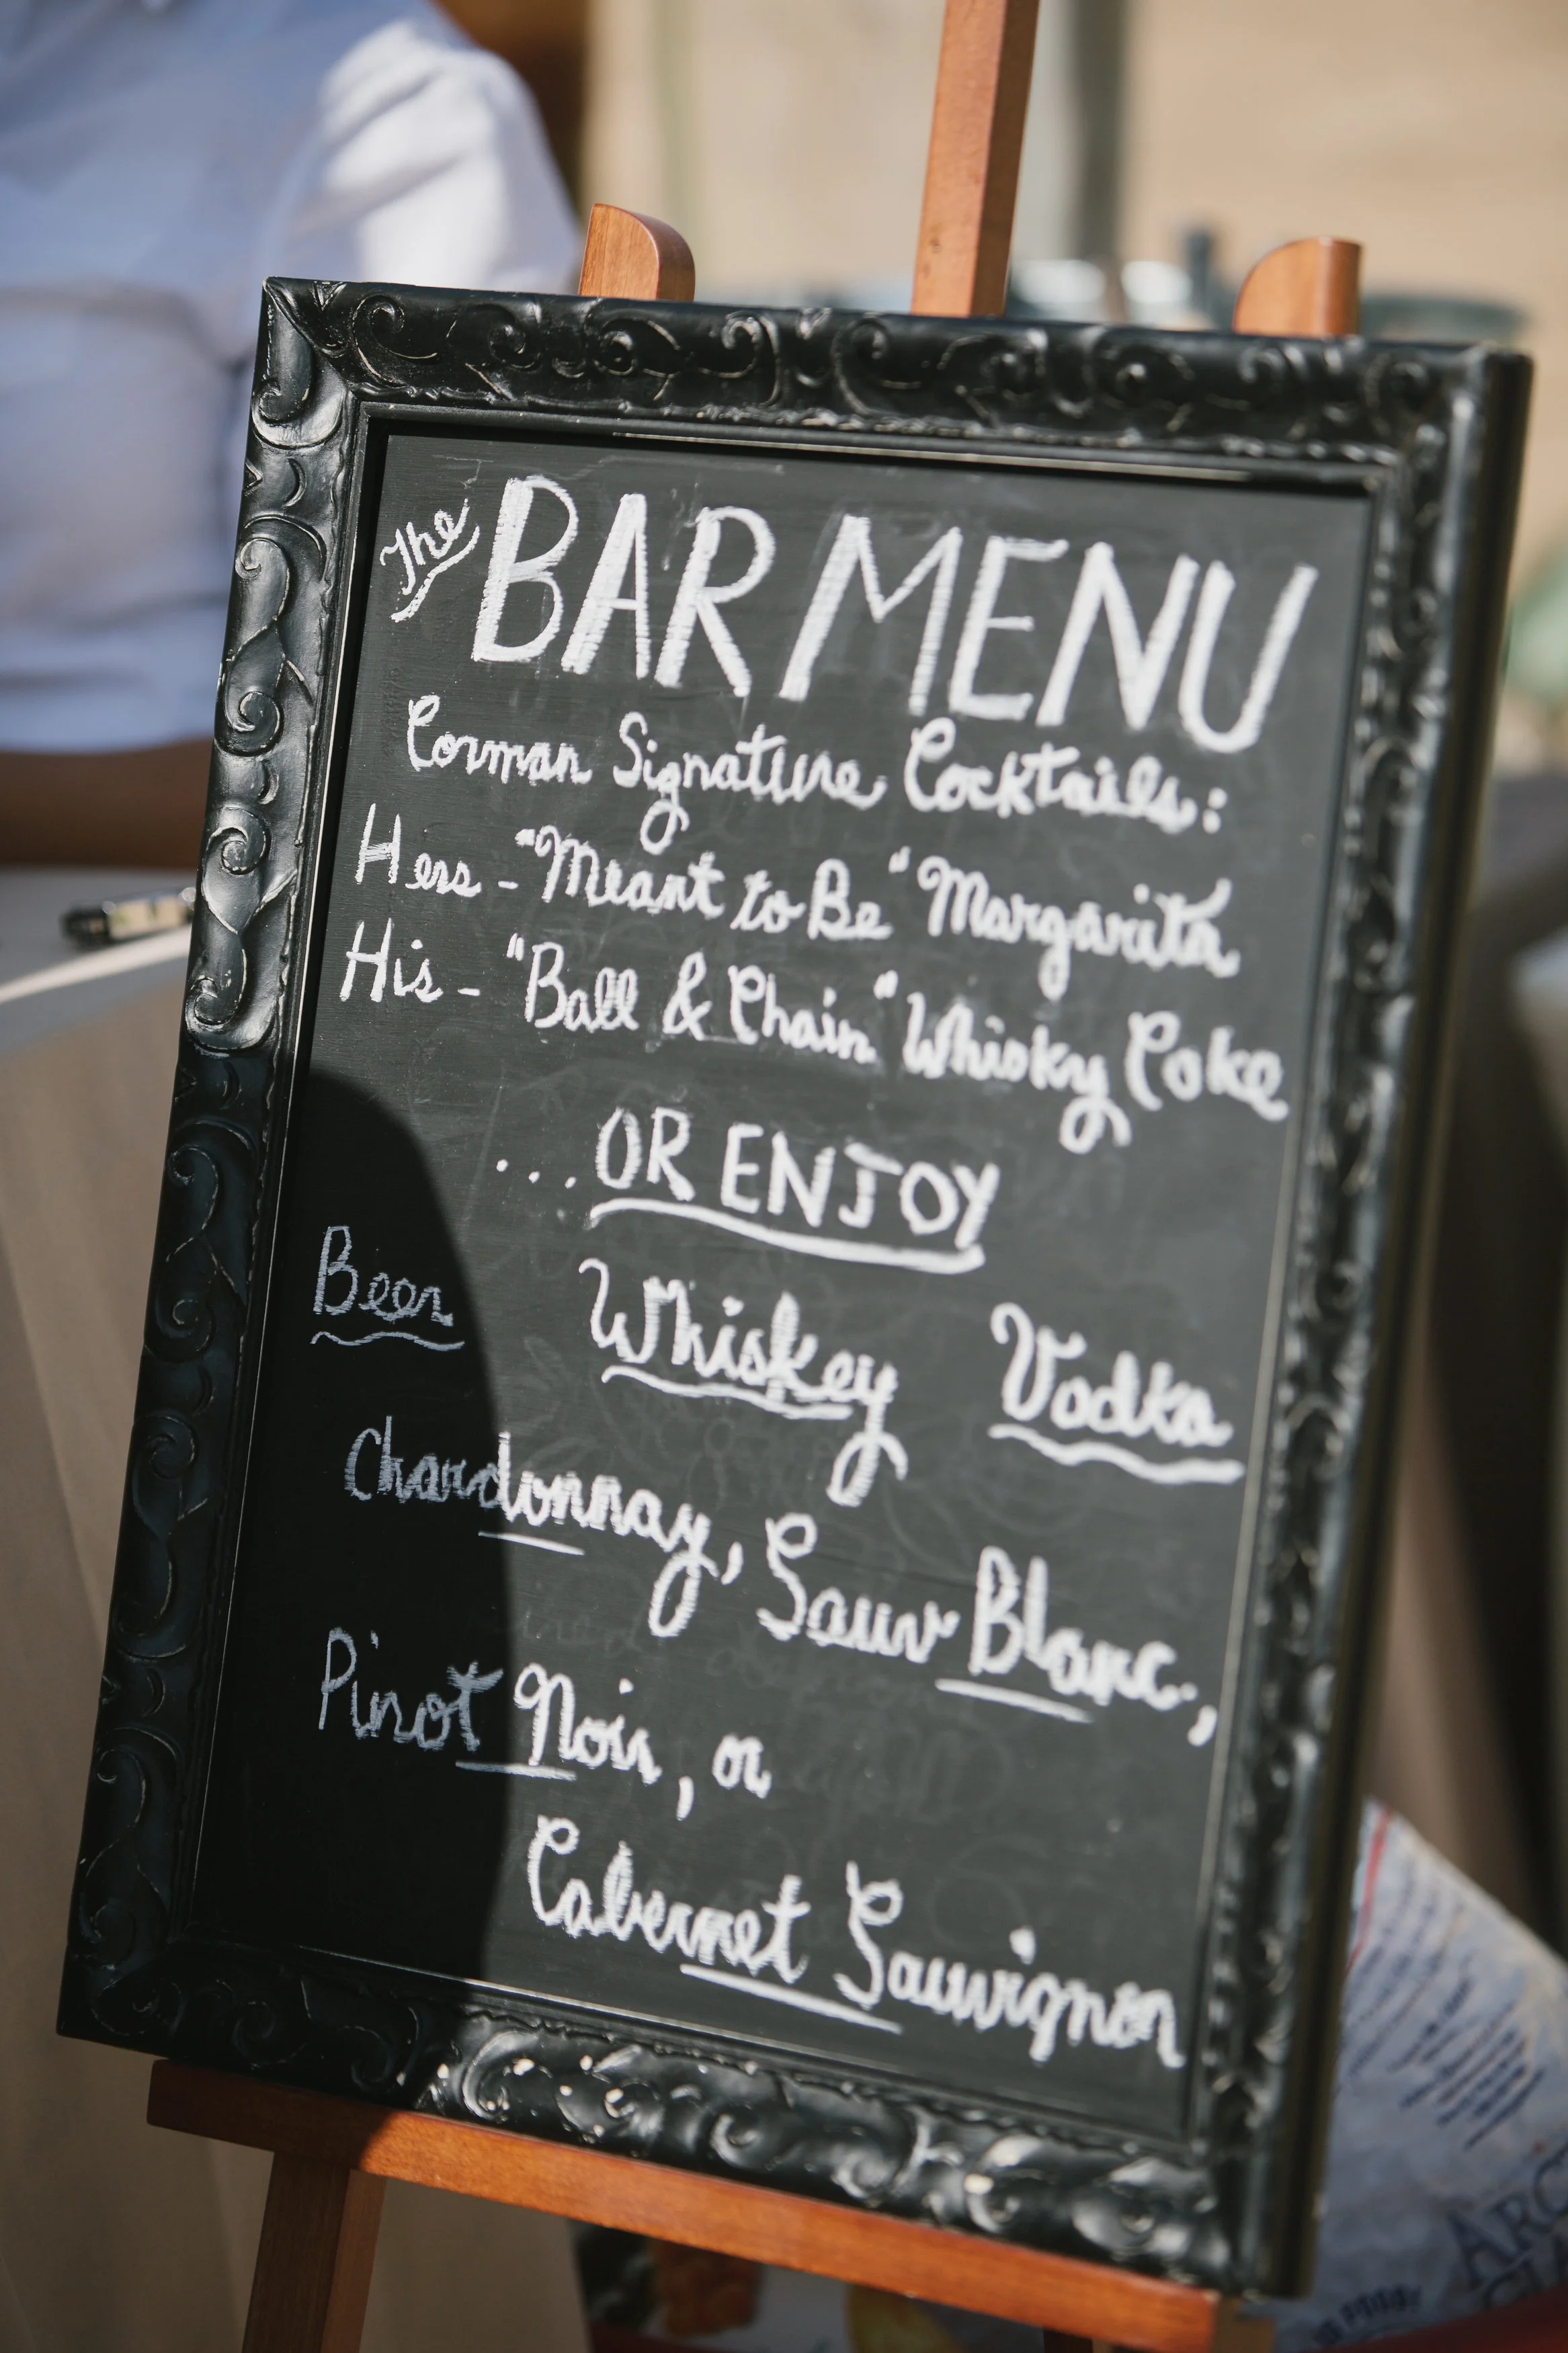 The BAR MENU
Corman Signature Cocktails:
Hers - "Meant to Be" Margarita
His - "Ball & Chain" Whisky Coke
...OR ENJOY
Beer Whiskey Vodka
Chardonnay, Sauv Blanc.,
Pinot Noir, or
Cabernet Sauvignon
ARC